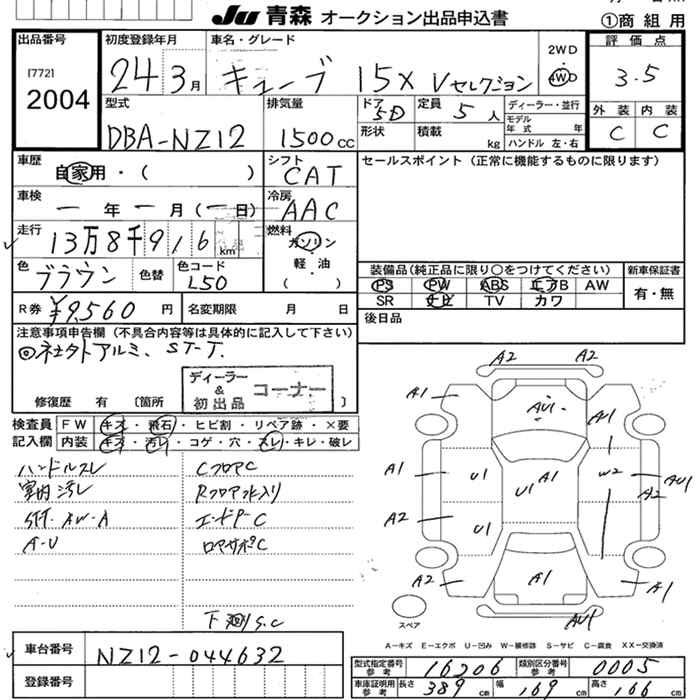 JU 青森 オークション出品申込書
①商 組 用
出品番号
[772]
2004
初度登録年月
24 3月
車名・グレード
キューブ 15X Vセレクション
2WD
4WD
評価点
3.5
外装 内装
C C
型式
DBA-NZ12
排気量
1500cc
ドア
5D
定員
5人
形状
積載
kg
ディーラー・並行
モデル年式 年
ハンドル 左・右
車歴
自家用・( )
シフト
CAT
セールスポイント(正常に機能するものに限ります)
車検
一年一月(一日)
冷房
AAC
走行
13万8千916km
燃料
ガソリン
・
軽油
( )
色
ブラウン
色替
色コード
L50
装備品(純正品に限り○をつけてください)
新車保証書
PS PW ABS エアB AW
SR ナビ TV カワ
有・無
R券
¥9,560円
名変期限 月 日
後日品
注意事項申告欄(不具合内容等は具体的に記入して下さい)
◎ネクストアルミ、ST-T.
ディーラー&初出品 コーナー
修復歴 有 〔箇所 〕
検査員記入欄
FW キズ・飛石・ヒビ割・リペア跡・×要
内装 キズ・汚レ・コゲ・穴・スレ・キレ・破レ
ハンドルスレ
室内汚レ
Stf. AW-A
A-U
CフロアC
Rフロア水入り
エンドマーC
ロアサポC
下廻りS.C
A2 A2
A1 AU1 AU1
A1 U1 U1 A1 W2 A2 AU1
A2 U1
A2 A1 A1
AU1
スペア
A-キズ E-エクボ U-凹み W-補修跡 S-サビ C-腐食 XX-交換済
車台番号
NZ12-044632
登録番号
型式指定番号参考
16206
類別区分番号参考
0005
車庫証明用参考
長さ 389cm 幅 169cm 高さ 166cm